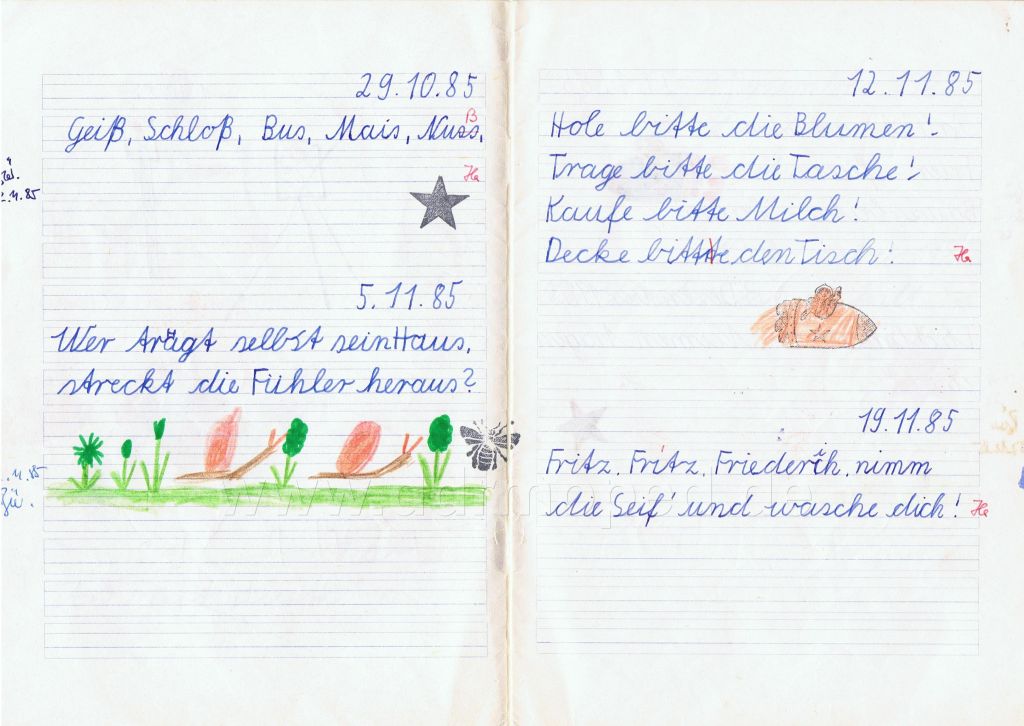 29.10.85
Geiß, Schloß, Bus, Mais, Nuss.
ß
Ha
5.11.85
Wer trägt selbst sein Haus,
streckt die Fühler heraus?
.11.85
12.11.85
Hole bitte die Blumen!
Trage bitte die Tasche!
Kaufe bitte Milch!
Decke bitte den Tisch!
Ha
19.11.85
Fritz, Fritz, Friederich, nimm
die Seif' und wasche dich!
Ha